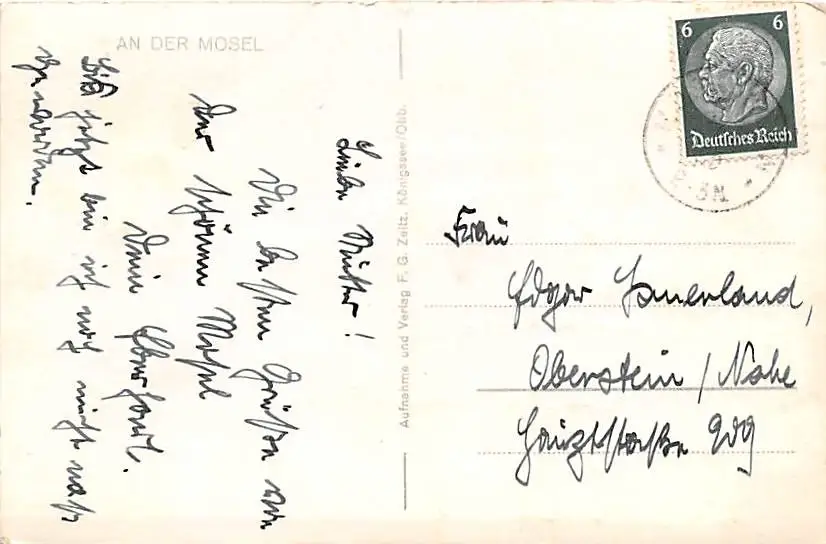 AN DER MOSEL
Liebe Mutter!
Die besten Grüße von
der schönen Mosel
Dein Eberhard.
Bis jetzt bin ich noch nicht naß
geworden.
Aufnahme und Verlag F. G. Zeitz, Königssee/Obb.
6 6
Deutsches Reich
Frau
Edgar Sauerland,
Oberstein / Nahe
Hauptstraße